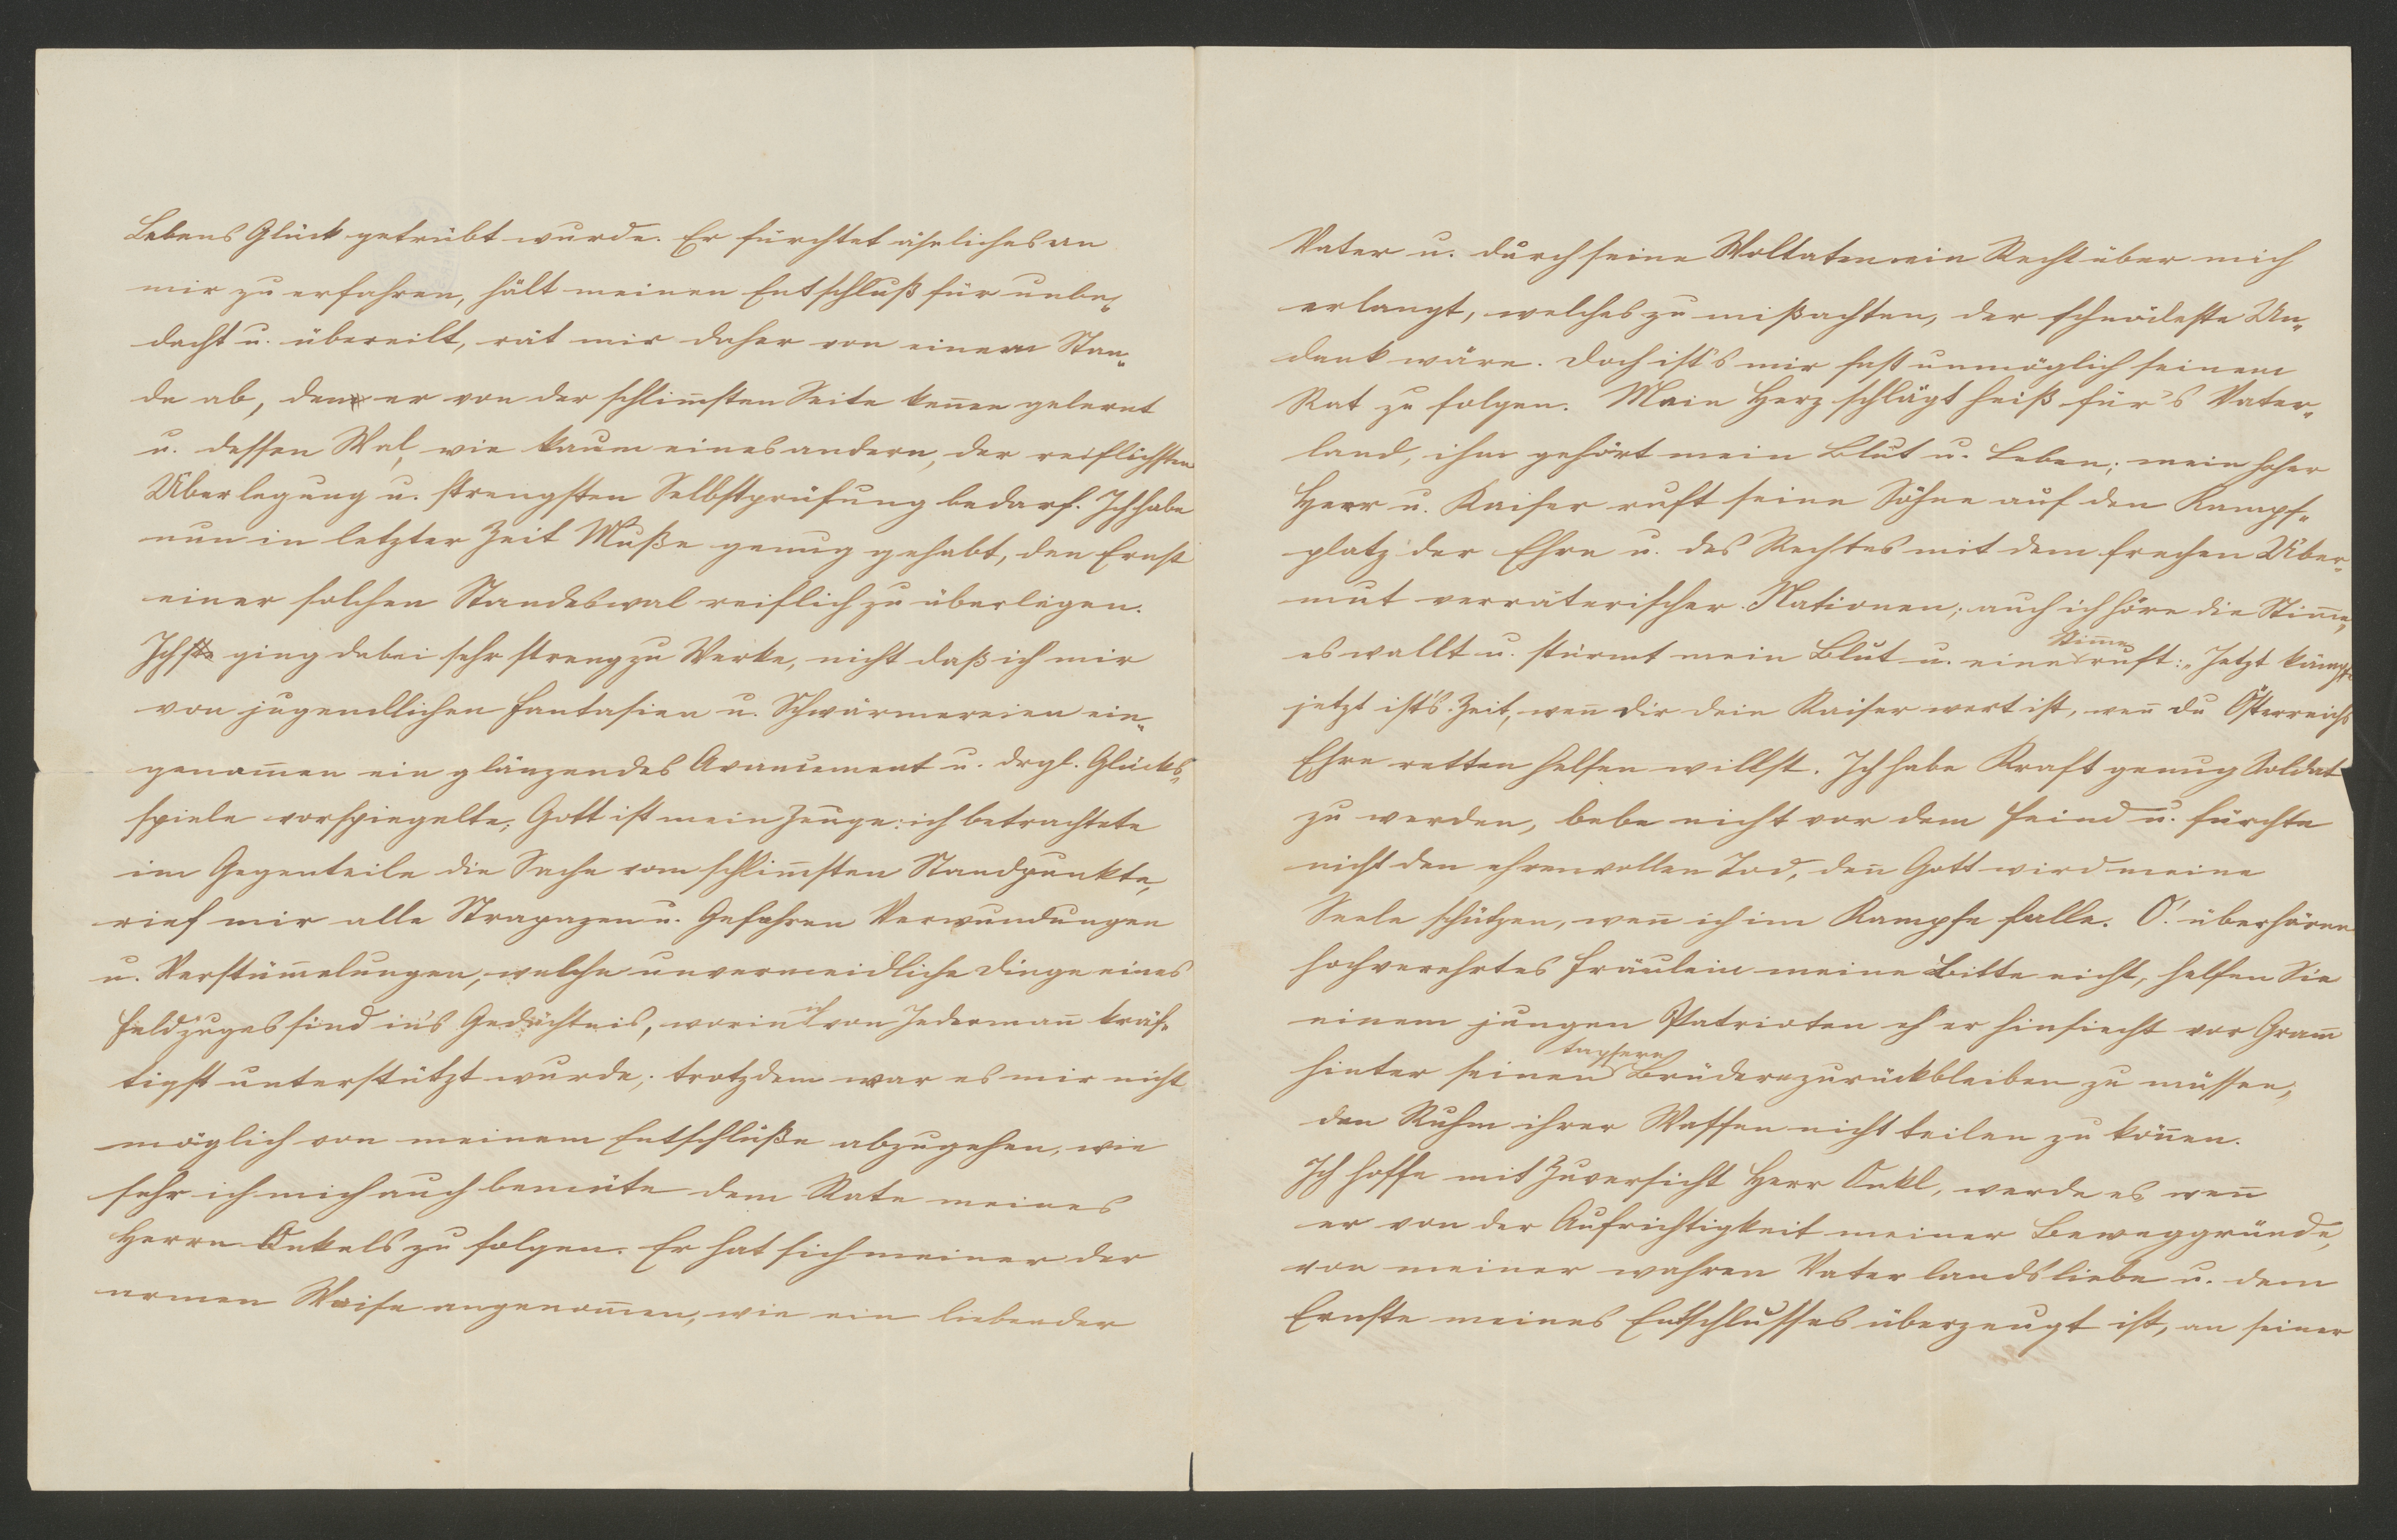 Lebens Glück getrübt wurde. Er fürchtet änliches an
mir zu erfahren, hält meinen Entschluß für unbe-
dacht u. übereilt, rät mir daher von einem Stan-
de ab, den er von der schlim̅sten Seite ken̅en gelernt
u. dessen Wal, wie kaum eines andern, der reiflichsten
Überlegung u. strengsten Selbstprüfung bedarf. Ich habe
nun in letzter Zeit Muße genug gehabt, den Ernst
einer solchen Standeswal reiflich zu überlegen.
Ich ging dabei sehr streng zu Werke, nicht daß ich mir
von jugendlichen Fantasien u. Schwärmereien ein-
genom̅en ein glänzendes Avancement u. drgl. Glücks-
spiele vorspiegelte; Gott ist mein Zeuge: ich betrachtete
im Gegenteile die Sache vom schlim̅sten Standpunkte,
rief mir alle Strapazen u. Gefahren Verwundungen
u. Verstüm̅elungen, welche unvermeidliche Dinge eines
Feldzuges sind in's Gedächtnis, worin ich von Jederman̅ kräf-
tigst unterstützt wurde; trotzdem war es mir nicht
möglich von meinem Entschluße abzugehen, wie
sehr ich mich auch bemüte dem Rate meines
Herrn Onkels zu folgen. Er hat sich meiner der
armen Waise angenom̅en, wie ein liebender
Vater u. durch seine Woltaten ein Recht über mich
erlangt, welches zu mißachten, der schnödeste Un-
dank wäre. Doch ist's mir fast unmöglich seinem
Rat zu folgen. Mein Herz schlägt heiß für's Vater-
land, ihm gehört mein Blut u. Leben; mein hoher
Herr u. Kaiser ruft seine Söhne auf den Kampf-
platz der Ehre u. des Rechtes mit dem frechen Über-
mut verräterischer Nationen; auch ich höre die Stim̅e,
es wallt u. stürmt mein Blut u. eine Stim̅e ruft: „Jetzt kämpfe
jetzt ist's Zeit, wen̅ dir dein Kaiser wert ist, wen̅ du Österreichs
Ehre retten helfen willst. Ich habe Kraft genug Soldat
zu werden, bebe nicht vor dem Feind u. fürchte
nicht den ehrenvollen Tod, den̅ Gott wird meine
Seele schützen, wen̅ ich im Kampfe falle. O! überhören
hochverehrtes Fräulein meine Bitte nicht, helfen Sie
einem jungen Patrioten eh' er hinsiecht vor Gram̅
hinter seinen tapfern Brüdern zurückbleiben zu müssen,
den Ruhm ihrer Waffen nicht teilen zu kön̅en.
Ich hoffe mit Zuversicht Herr Onkl, werde es wen̅
er von der Aufrichtigkeit meiner Beweggründe,
von meiner wahren Vaterlandsliebe u. dem
Ernste meines Entschlusses überzeugt ist, an seiner